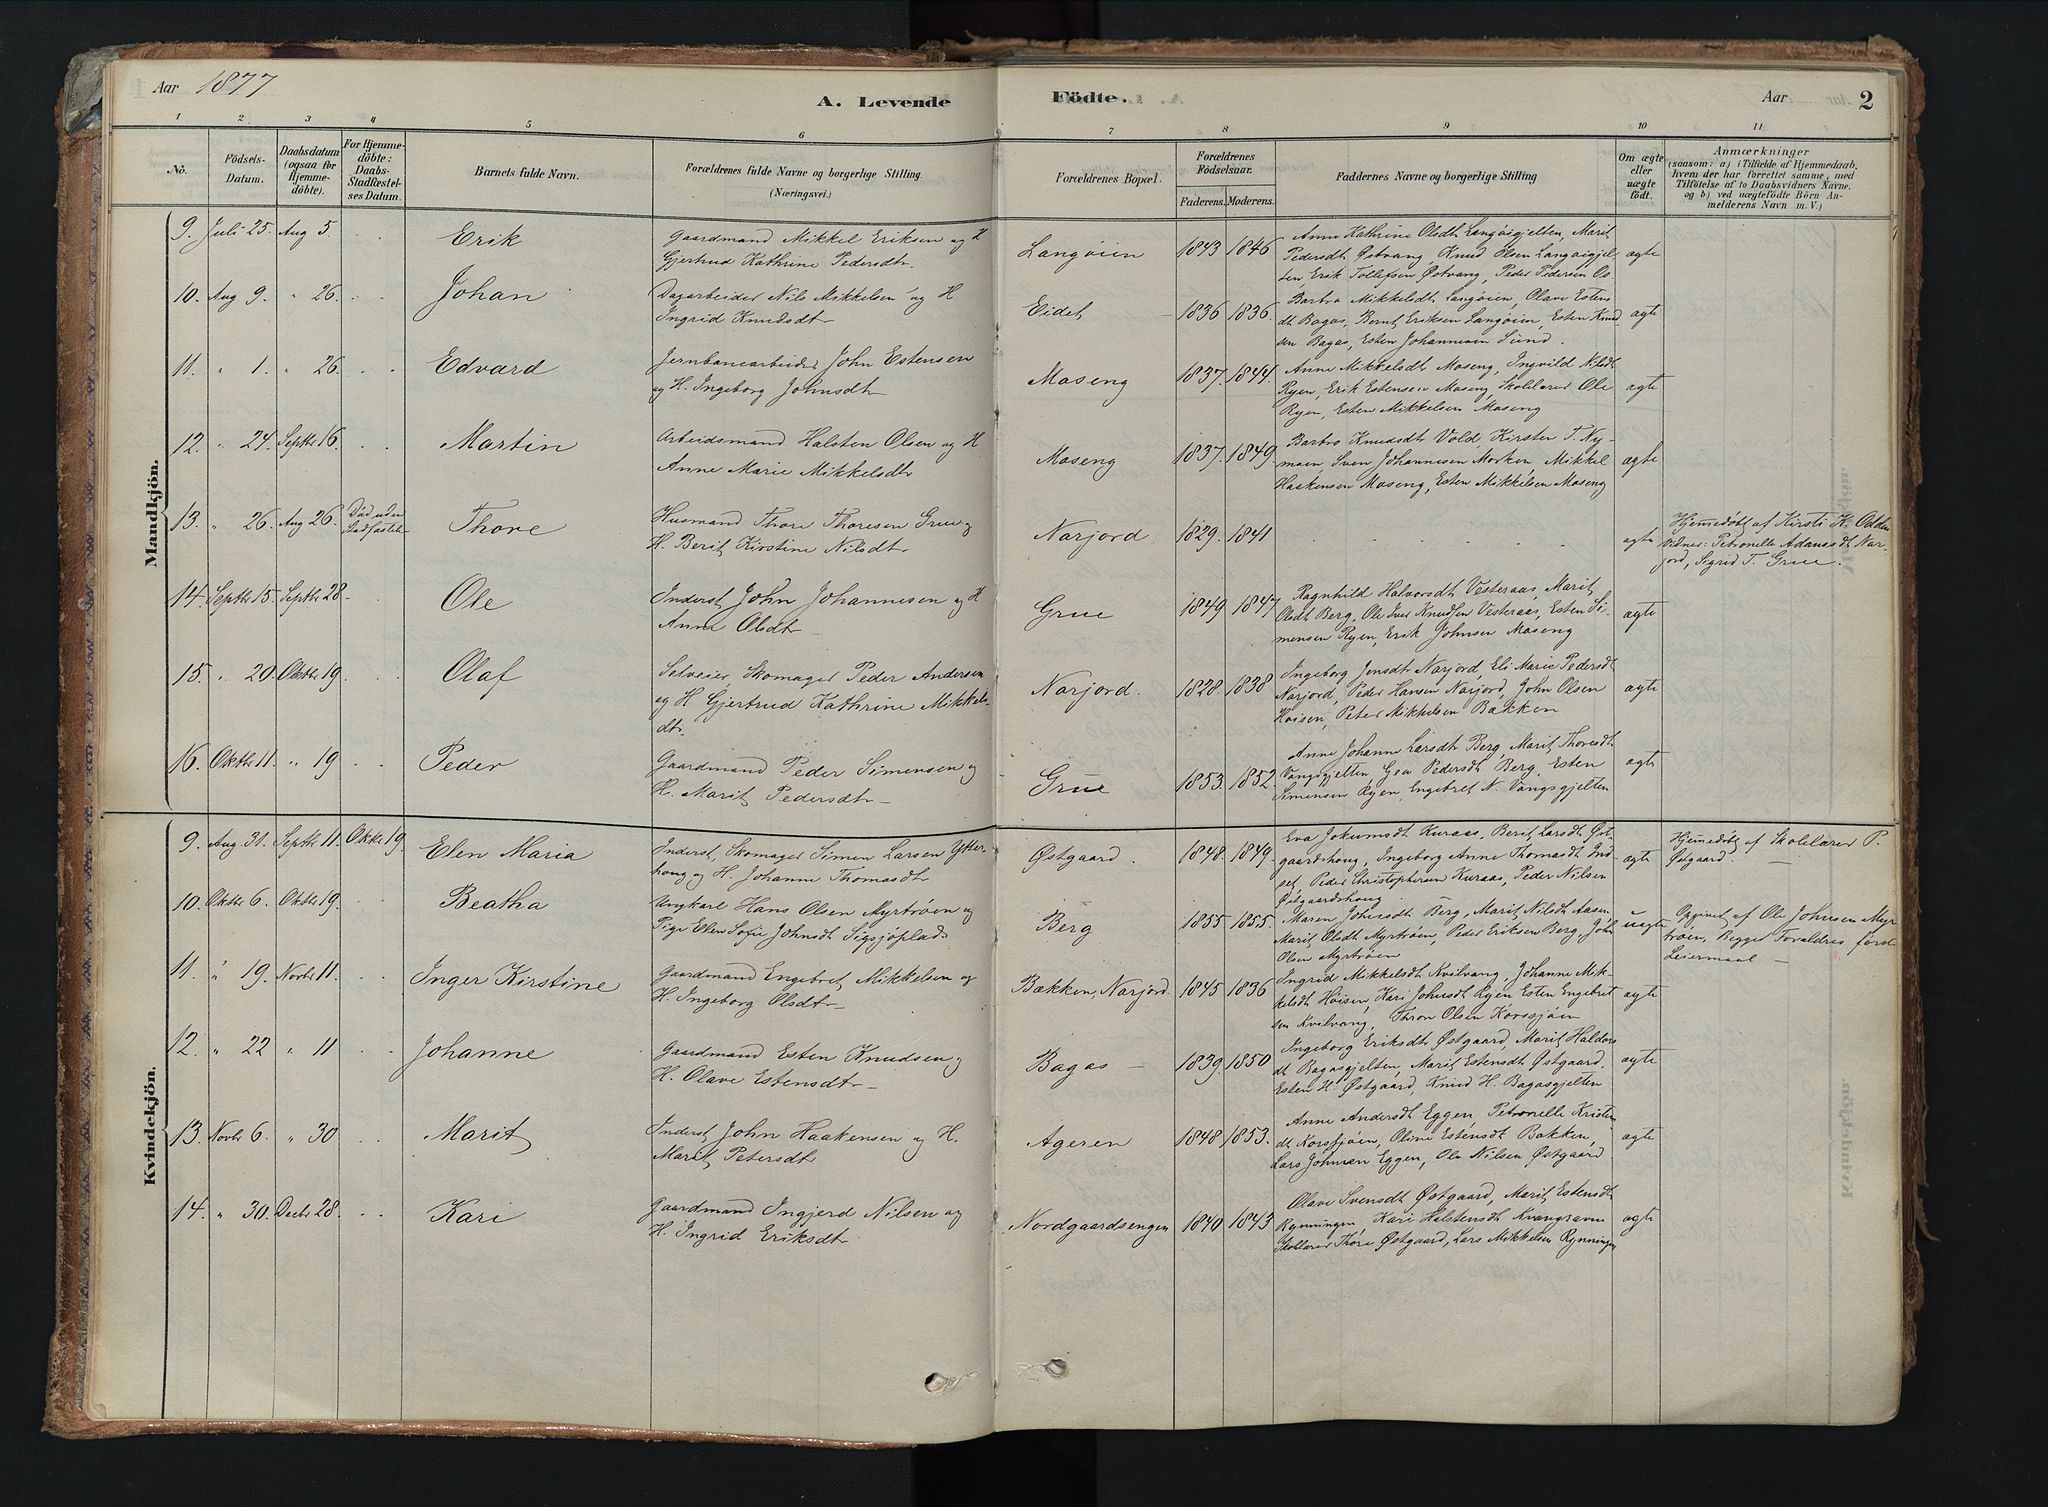 Aar 1877
A. Levende Födte.
Aar 2
1 2 3 4 5 6 7 8 9 10 11
No.
Födsels-
Datum.
Daabsdatum
(ogsaa for
Hjemme-
döbte).
For Hjemme-
döbte:
Daabs-
Stadfæstel-
ses Datum.
Barnets fulde Navn.
Forældrenes fulde Navne og borgerlige Stilling.
(Næringsvei.)
Forældrenes Bopæl.
Forældrenes
Födselsaar.
Faderens. Moderens.
Faddernes Navne og borgerlige Stilling
Om ægte
eller
uægte
födt.
Anmærkninger
(saasom: a) i Tilfælde af Hjemmedaab,
hvem der har forrettet samme, med
Tilföielse af to Daabsvidners Navne,
og b) ved uægtefödte Börn An-
melderens Navn m. V.)
Mandkjön.
9. Juli 25. Aug 5. Erik
Gaardmand Mikkel Eriksen og H
Gjertrud Kathrine Pedersdtr
Langøien 1843 1846
Anne Kathrine Olsdt Langøigjelten, Marit
Pedersdt Østvang, Knud Olsen Langøigjel-
ten, Erik Tollefsen Østvang, Peder Pedersen Os-
ægte
10. Aug 9. " 26. Johan
Dagarbeider Nils Mikkelsen og H
Ingrid Knudsdtr
Eidet 1836 1836.
Barbro Mikkelsdt Langøien, Olave Estens
dt Bagas, Bernt Eriksen Langøien, Esten Knud
sen Bagas, Esten Johannesen Sund.
ægte
11. " 1. " 26. Edvard
Jernbanearbeider John Estensen
og H. Ingeborg Johnsdtr
Moseng 1837. 1844.
Anne Mikkelsdt Moseng, Ingvild Nilsdt
Ryen, Erik Estensen Moseng, Skolelærer Ole
Ryen, Esten Mikkelsen Moseng
ægte
12. " 24. Septbr 16. Martin
Arbeidsmand Halsten Olsen og H
Anne Marie Mikkelsdtr
Moseng 1837. 1849.
Barbro Knudsdt Vold, Kirsten T. Ny-
moen, Sven Johannesen Morken, Mikkel
Haakensen Moseng, Esten Mikkelsen Moseng
ægte
13. " 26. Aug 26. Död uden
Stadfæstelse
Thore
Husmand Thore Thoresen Grue og
H. Berit Kirstine Nilsdtr
Narjord 1829. 1841
ægte
Hjemmedøbt af Kirsti K. Odden
Vidner: Petronelle Adamsdt Nar-
jord, Sigrid T. Grue.
14. Septbr 15. Septbr 28. Ole
Inderst John Johannesen og H
Anne Olsdtr
Grue 1849 1847
Ragnhild Halvorsdt Vesteraas, Marit
Olsdt Berg, Ole Iver Knudsen Vesteraas, Esten Si-
mensen Ryen, Erik Johnsen Moseng
ægte
15. " 20. Oktbr 19. Olaf
Selveier, Skomager Peder Andersen
og H Gjertrud Kathrine Mikkels-
dtr.
Narjord. 1828. 1838
Ingeborg Jonsdt Narjord, Eli Marie Pedersdt
Narjord, Peder Hansen Narjord, John Olsen
Høisen, Peter Mikkelsen Bakken
ægte
16. Oktbr 11. " 19 Peder
Gaardmand Peder Simensen og
H. Marit Pedersdtr
Grue 1853. 1852.
Anne Johanne Larsdt Berg, Marit Thoresdt
Vangsgjelten, Gea Pedersdt Berg, Esten
Simensen Ryen, Engebret N. Vangsgjelten
ægte
Kvindekjön.
9. Aug. 31. Septbr 11 Oktbr 19. Elen Maria
Inderst, Skomager Simen Larsen Ytter-
houg og H. Johanne Thomasdtr
Østgaard. 1848. 1849.
Eva Jokumsdt Kuraas, Berit Larsdt Øst-
gaardshoug, Ingeborg Anne Thomasdt Ind-
set, Peder Christophersen Kuraas, Peder Nilsen
Østgaardshoug
ægte
Hjemmedøbt af Skolelærer P.
Østgaard.
10. Oktbr 6. Oktbr 19. Beatha
Ungkarl Hans Olsen Myrtrøen og
Pige Elen Sofie Johnsdt Sigsjøplads
Berg 1855. 1855.
Maren Johnsdt Berg, Marit Nilsdt Aasen
Marit Olsdt Myrtrøen, Peder Eriksen Berg, John
Olsen Myrtrøen
uægte
Opgivet af Ole Johnsen Myr-
trøen, Begges Forældres første
Leiermaal
11. " 19. Novbr 11. Inger Kirstine
Gaardmand Engebret Mikkelsen og
H. Ingeborg Olsdtr
Bækken, Narjord 1845 1836
Ingrid Mikkelsdt Kvilvang, Johanne Mik-
kelsdt Høisen, Kari Johnsdt Ryen Esten Engebret
sen Kvilvang, Thron Olsen Korssjøen
ægte
12. " 22 " 11 Johanne
Gaardmand Esten Knudsen og
H. Olave Estensdtr
Bagas 1839. 1850
Ingeborg Eriksdt Østgaard, Marit Haldors
dt Bagasgjelten, Marit Estensdt Østgaard,
Esten H. Østgaard, Knud H. Bagasgjelten
ægte
13. Novbr 6. " 30 Marit
Inderst John Haakensen og H.
Marit Petersdtr
Ageren 1848 1853.
Anne Andersdt Eggen, Petronelle Kristen
dt Korssjøen, Olive Estensdt Bakken,
Lars Johnsen Eggen, Ole Nilsen Østgaard
ægte
14. " 30. Decbr 28. Kari
Gaardmand Ingjerd Nilsen og
H. Ingrid Eriksdtr
Nordgaardsengen 1840 1843
Olave Svensdt Østgaard, Marit Estensdt
Rynningen, Kari Halstensdt Kvangraven
Skolelærer Thore Østgaard, Lars Mikkelsen Rynningen
ægte